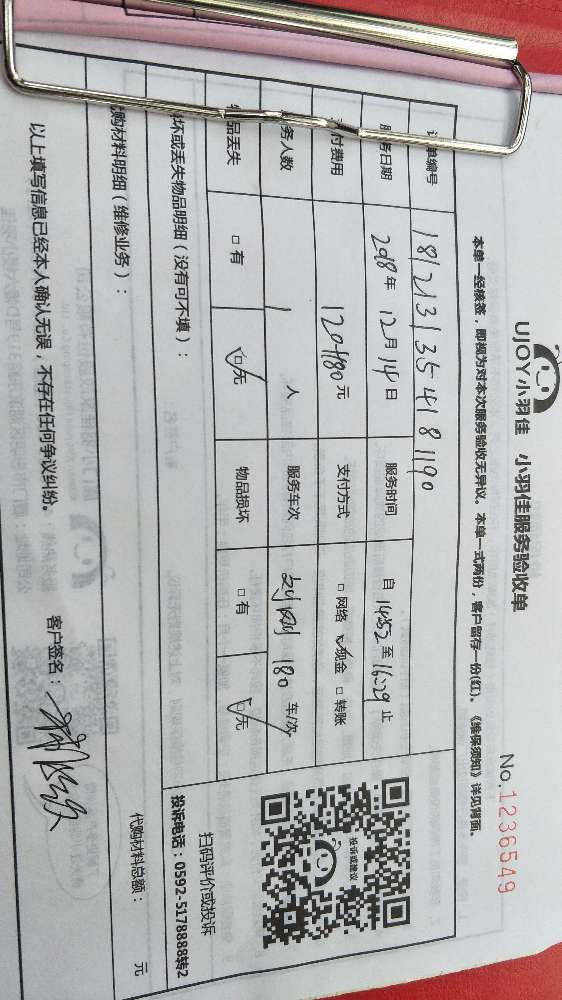 UJOY小羽佳 小羽佳服务验收单
No.1236549
本单一经核签，即视为对本次服务验收无异议。本单一式两份，客户留存一份(红)。《维保须知》详见背面。
单编号 181213135418190
务日期 2018年12月14日 服务时间 自14:52至16:29止
付费用 120+180元 支付方式 □网络 ☑现金 □转账
务人数 1人 服务车次 180 车/次
品丢失 □有 ☑无 物品损坏 □有 ☑无
投诉或建议
扫码评价或投诉
投诉电话：0592-5178888转2
坏或丢失物品明细（没有可不填）：
购材料明细（维修业务）：
代购材料总额： 元
以上填写信息已经本人确认无误，不存在任何争议纠纷。 客户签名：